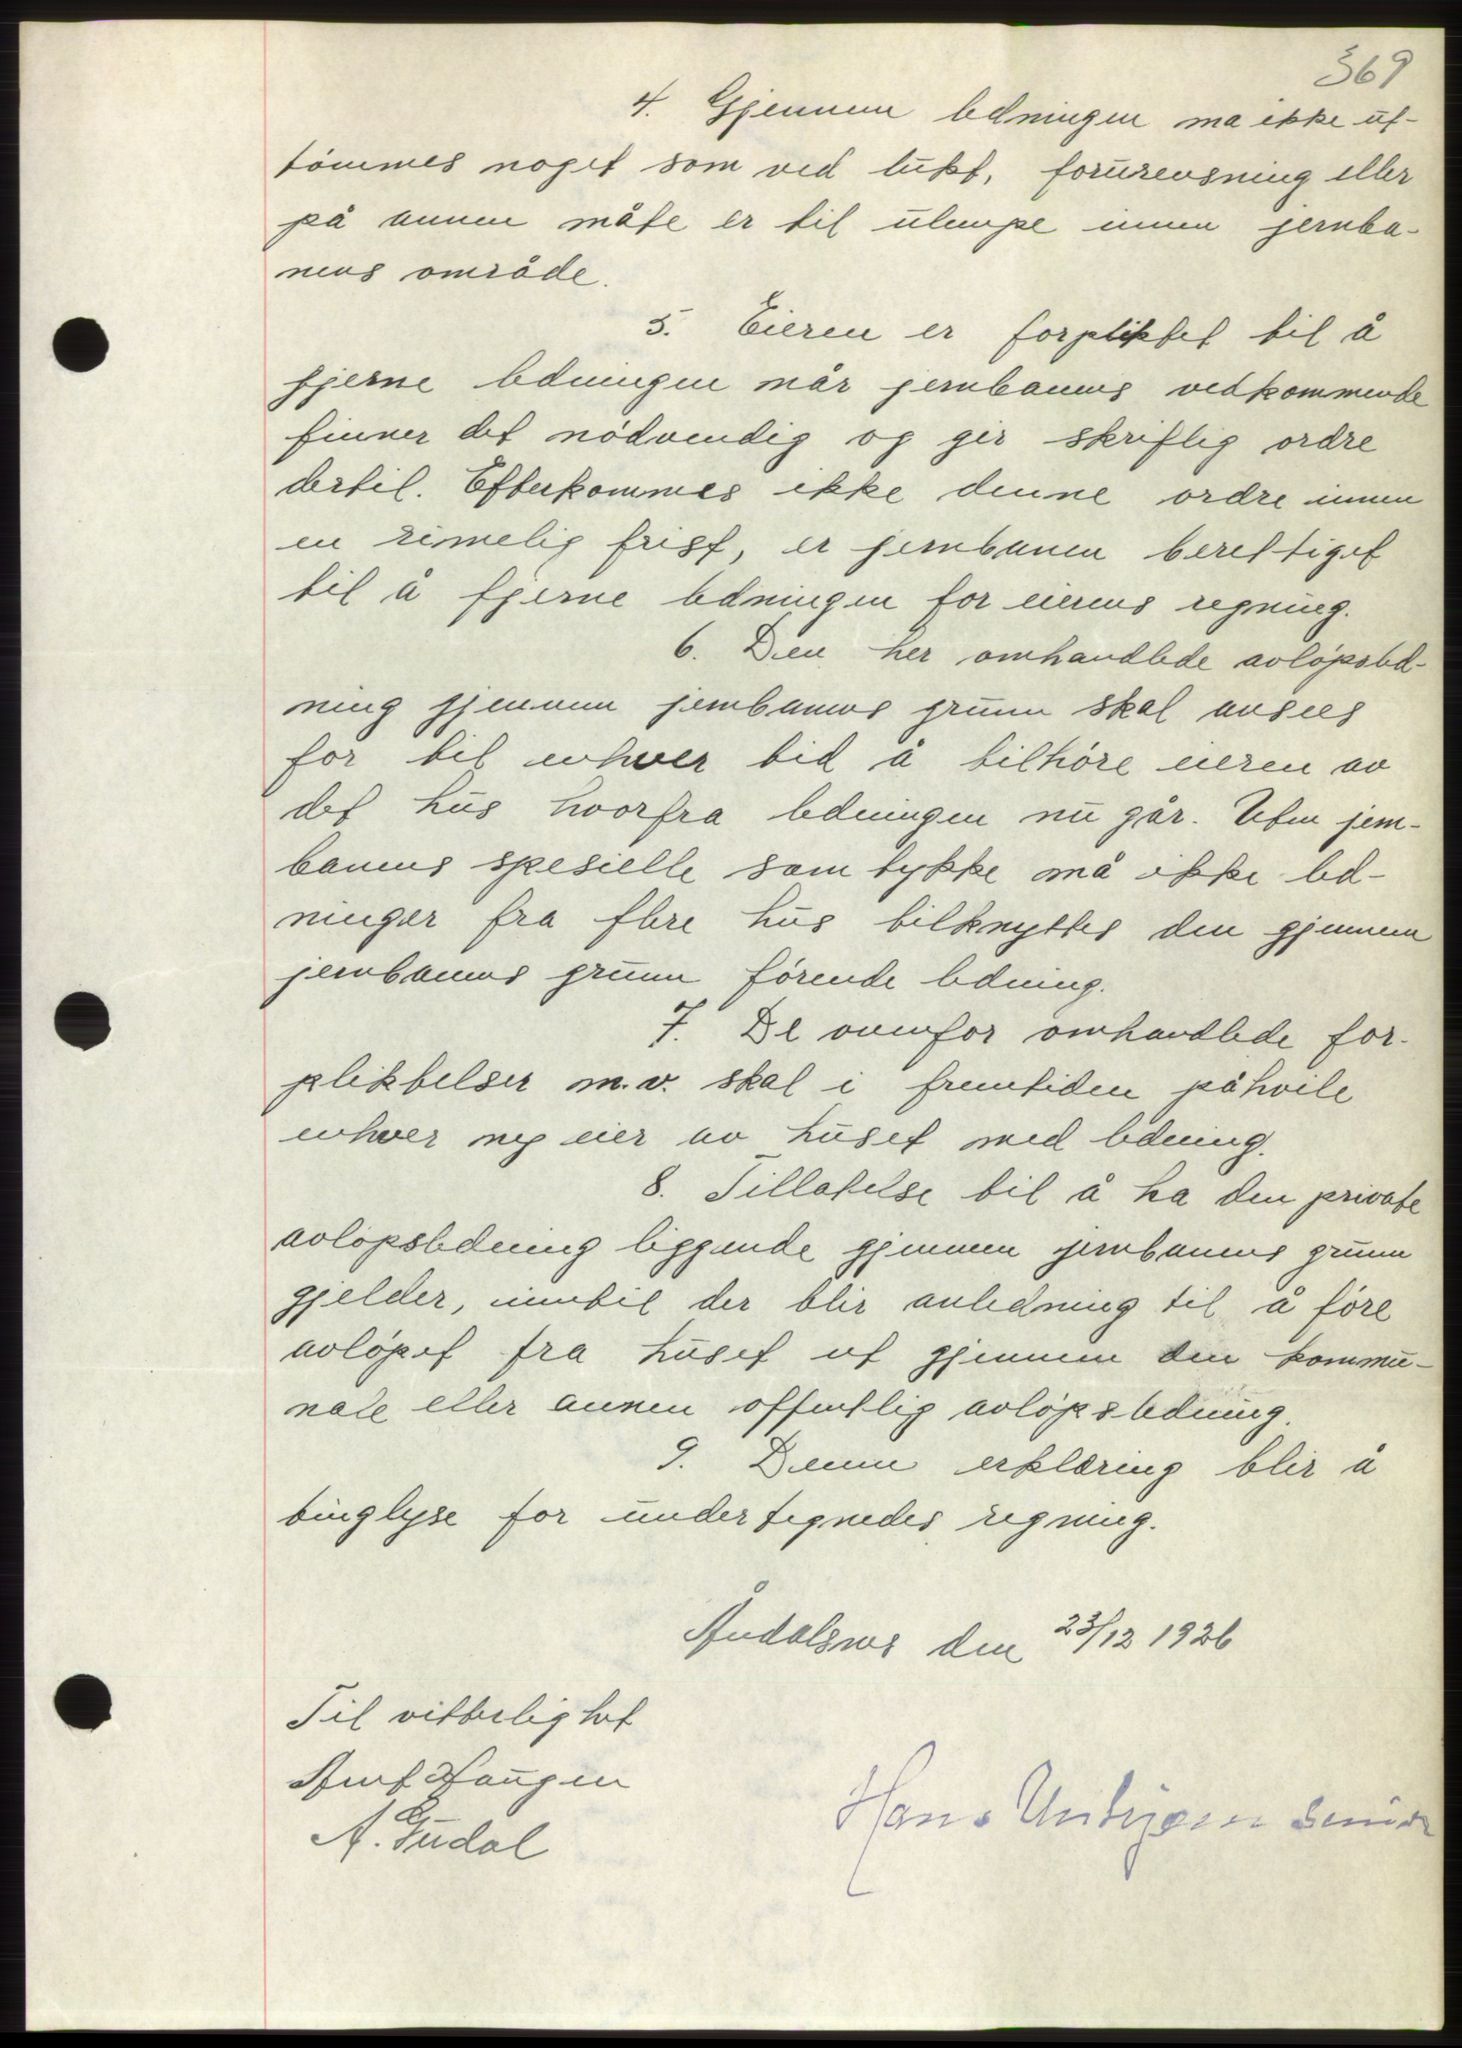 369
4. Gjennem ledningen må ikke ut-
tømmes noget som ved lukt, forurensning eller
på annen måte er til ulempe innen jernba-
nens område.
5. Eieren er forpliktet til å
fjerne ledningen når jernbanens vedkommende
finner det nödvendig og gir skriftlig ordre
dertil. Efterkommes ikke denne ordre innen
en rimelig frist, er jernbanen berettiget
til å fjerne ledningen for eierens regning.
6. Den her omhandlede avlöpsled-
ning gjennem jernbanens grunn skal ansees
for til enhver tid å tilhöre eieren av
det hus hvorfra ledningen nu går. Uten jern-
banens spesielle samtykke må ikke led-
ninger fra flere hus tilknyttes den gjennem
jernbanens grunn förende ledning.
7. De ovenfor omhandlede for-
pliktelser m.v. skal i fremtiden påhvile
enhver ny eier av huset med ledning.
8. Tillatelse til å ha den private
avlöpsledning liggende gjennem jernbanens grunn
gjelder, inntil der blir anledning til å före
avlöpet fra huset ut gjennem den kommu-
nale eller annen offentlig avlöpsledning.
9. Denne erklæring blir å
tinglyse for undertegnedes regning.
Åndalsnes den 23/12 1926
Til vitterlighet
Arnt Haugen
A. Gudal
Hans Unhjem senior